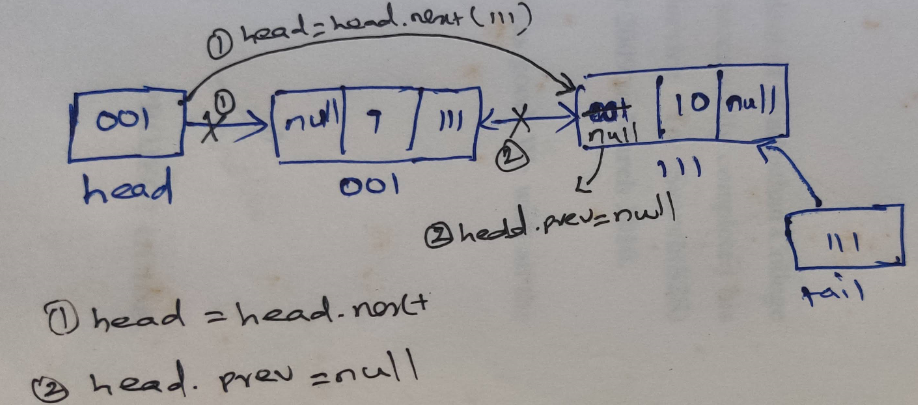 ① head=head.next(111)
①
001
null 9 111
001 null 10 null
②
head
001
111
② hedd.prev=null
111
tail
① head = head.next
② head. prev =null